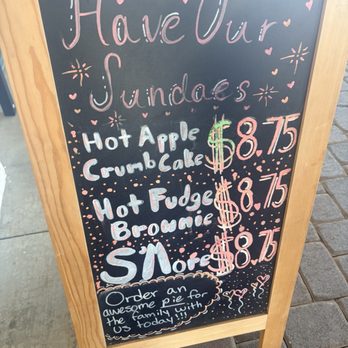 Have Our
Sundaes
Hot Apple
Crumb Cake $8.75
Hot Fudge
Brownie $8.75
SMore $8.75
Order an
awesome pie for
the family with
us today!!!